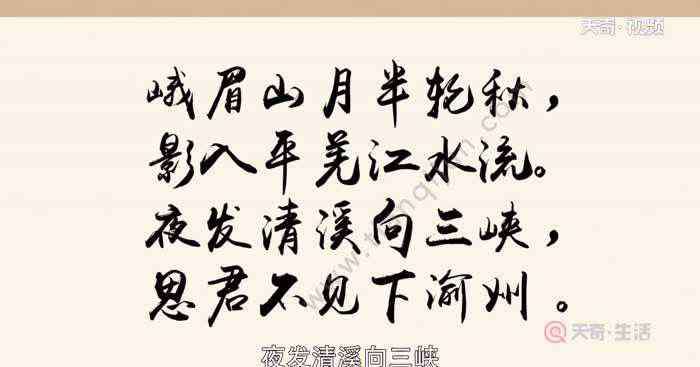 天奇·视频
峨眉山月半轮秋，
影入平羌江水流。
夜发清溪向三峡，
思君不见下渝州。
天奇·生活
夜发清溪向三峡